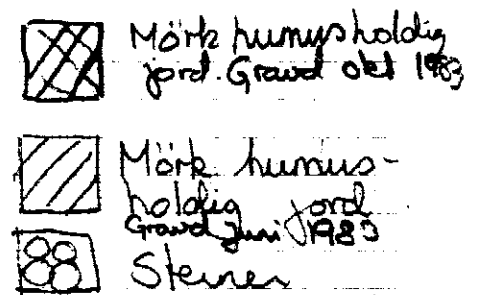 Mörk humusholdig
jord. Gravd okt 1983
Mörk humus-
holdig jord
Gravd juni 1983
Steiner